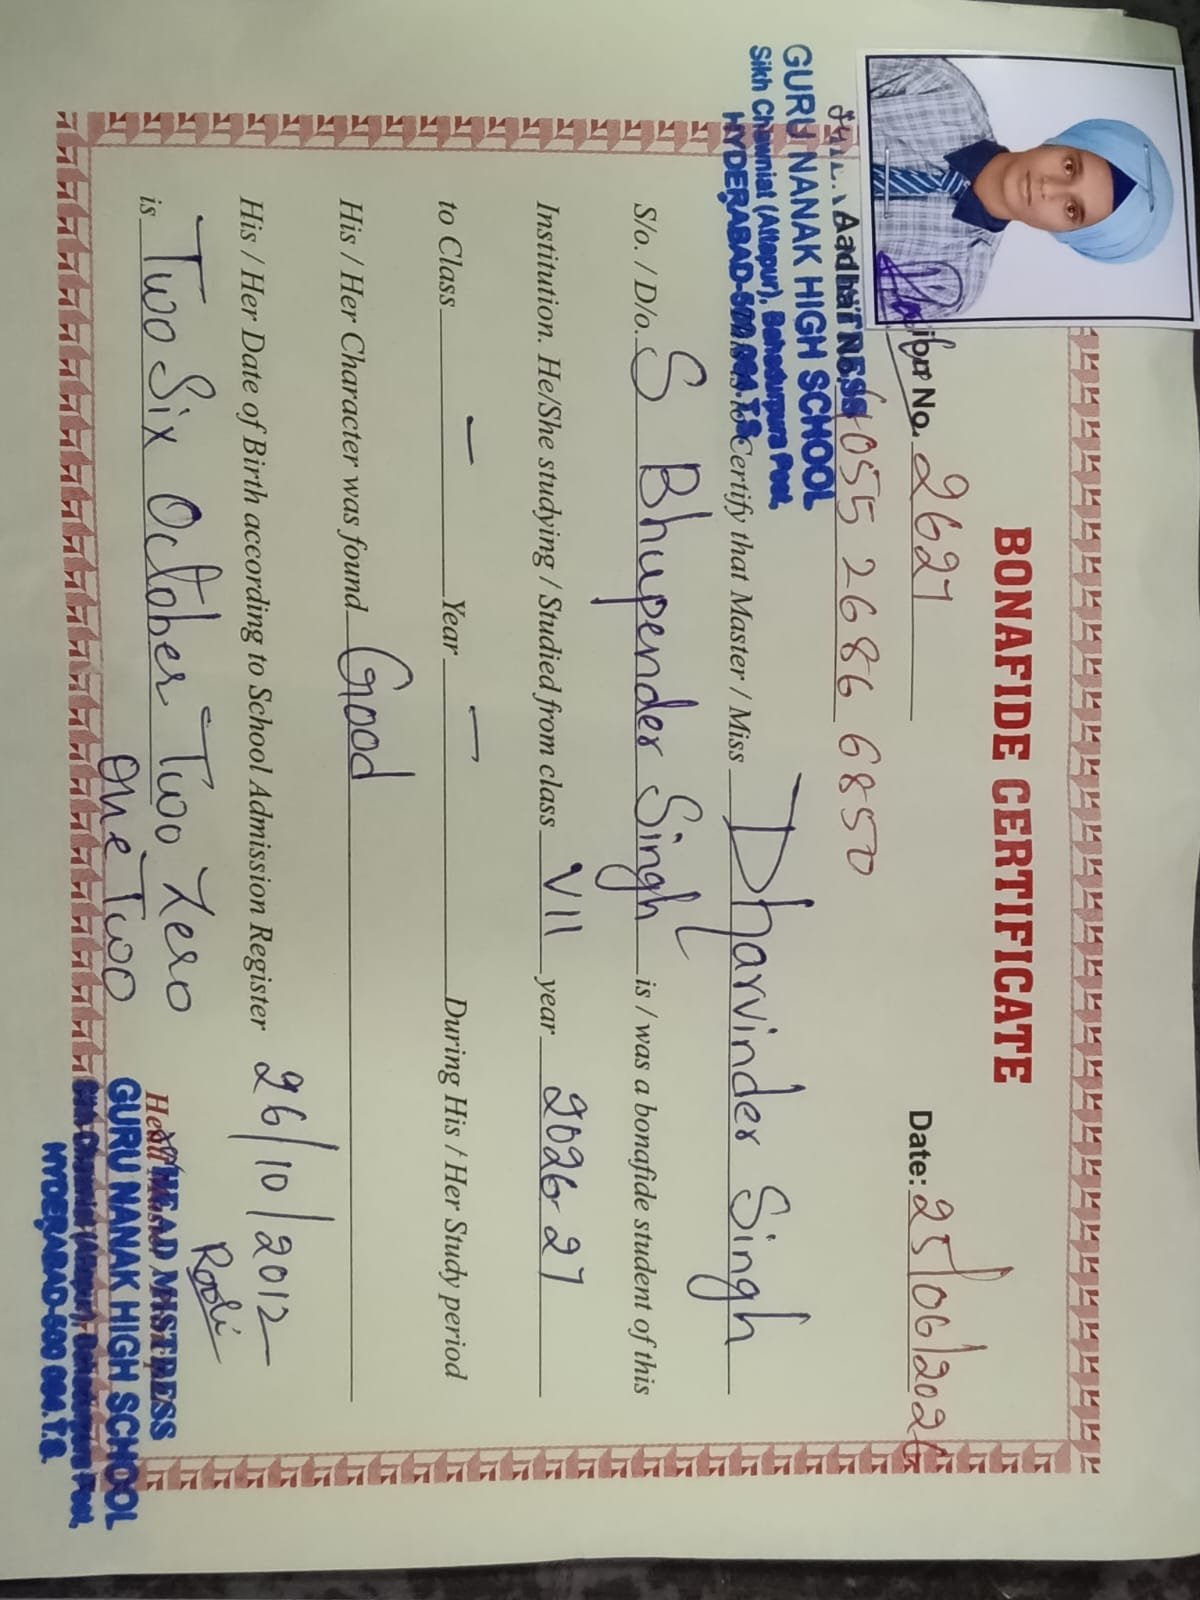 BONAFIDE CERTIFICATE
No. 2627 Date: 25/06/2026
Aadhar No. 4055 2686 6850
HEAD MISTRESS
GURU NANAK HIGH SCHOOL
Sikh Chawniat (Attapur), Bahadurpura Post,
HYDERABAD-500 064.T.S.
Certify that Master / Miss Dharvinder Singh
S/o. / D/o. S Bhupender Singh is / was a bonafide student of this
Institution. He/She studying / Studied from class VII year 2026-27
to Class — Year — During His / Her Study period
His / Her Character was found Good
His / Her Date of Birth according to School Admission Register 26/10/2012
is Two Six October Two Zero
One Two
HEAD MISTRESS
GURU NANAK HIGH SCHOOL
Sikh Chawniat (Attapur), Bahadurpura Post,
HYDERABAD-500 064.T.S.